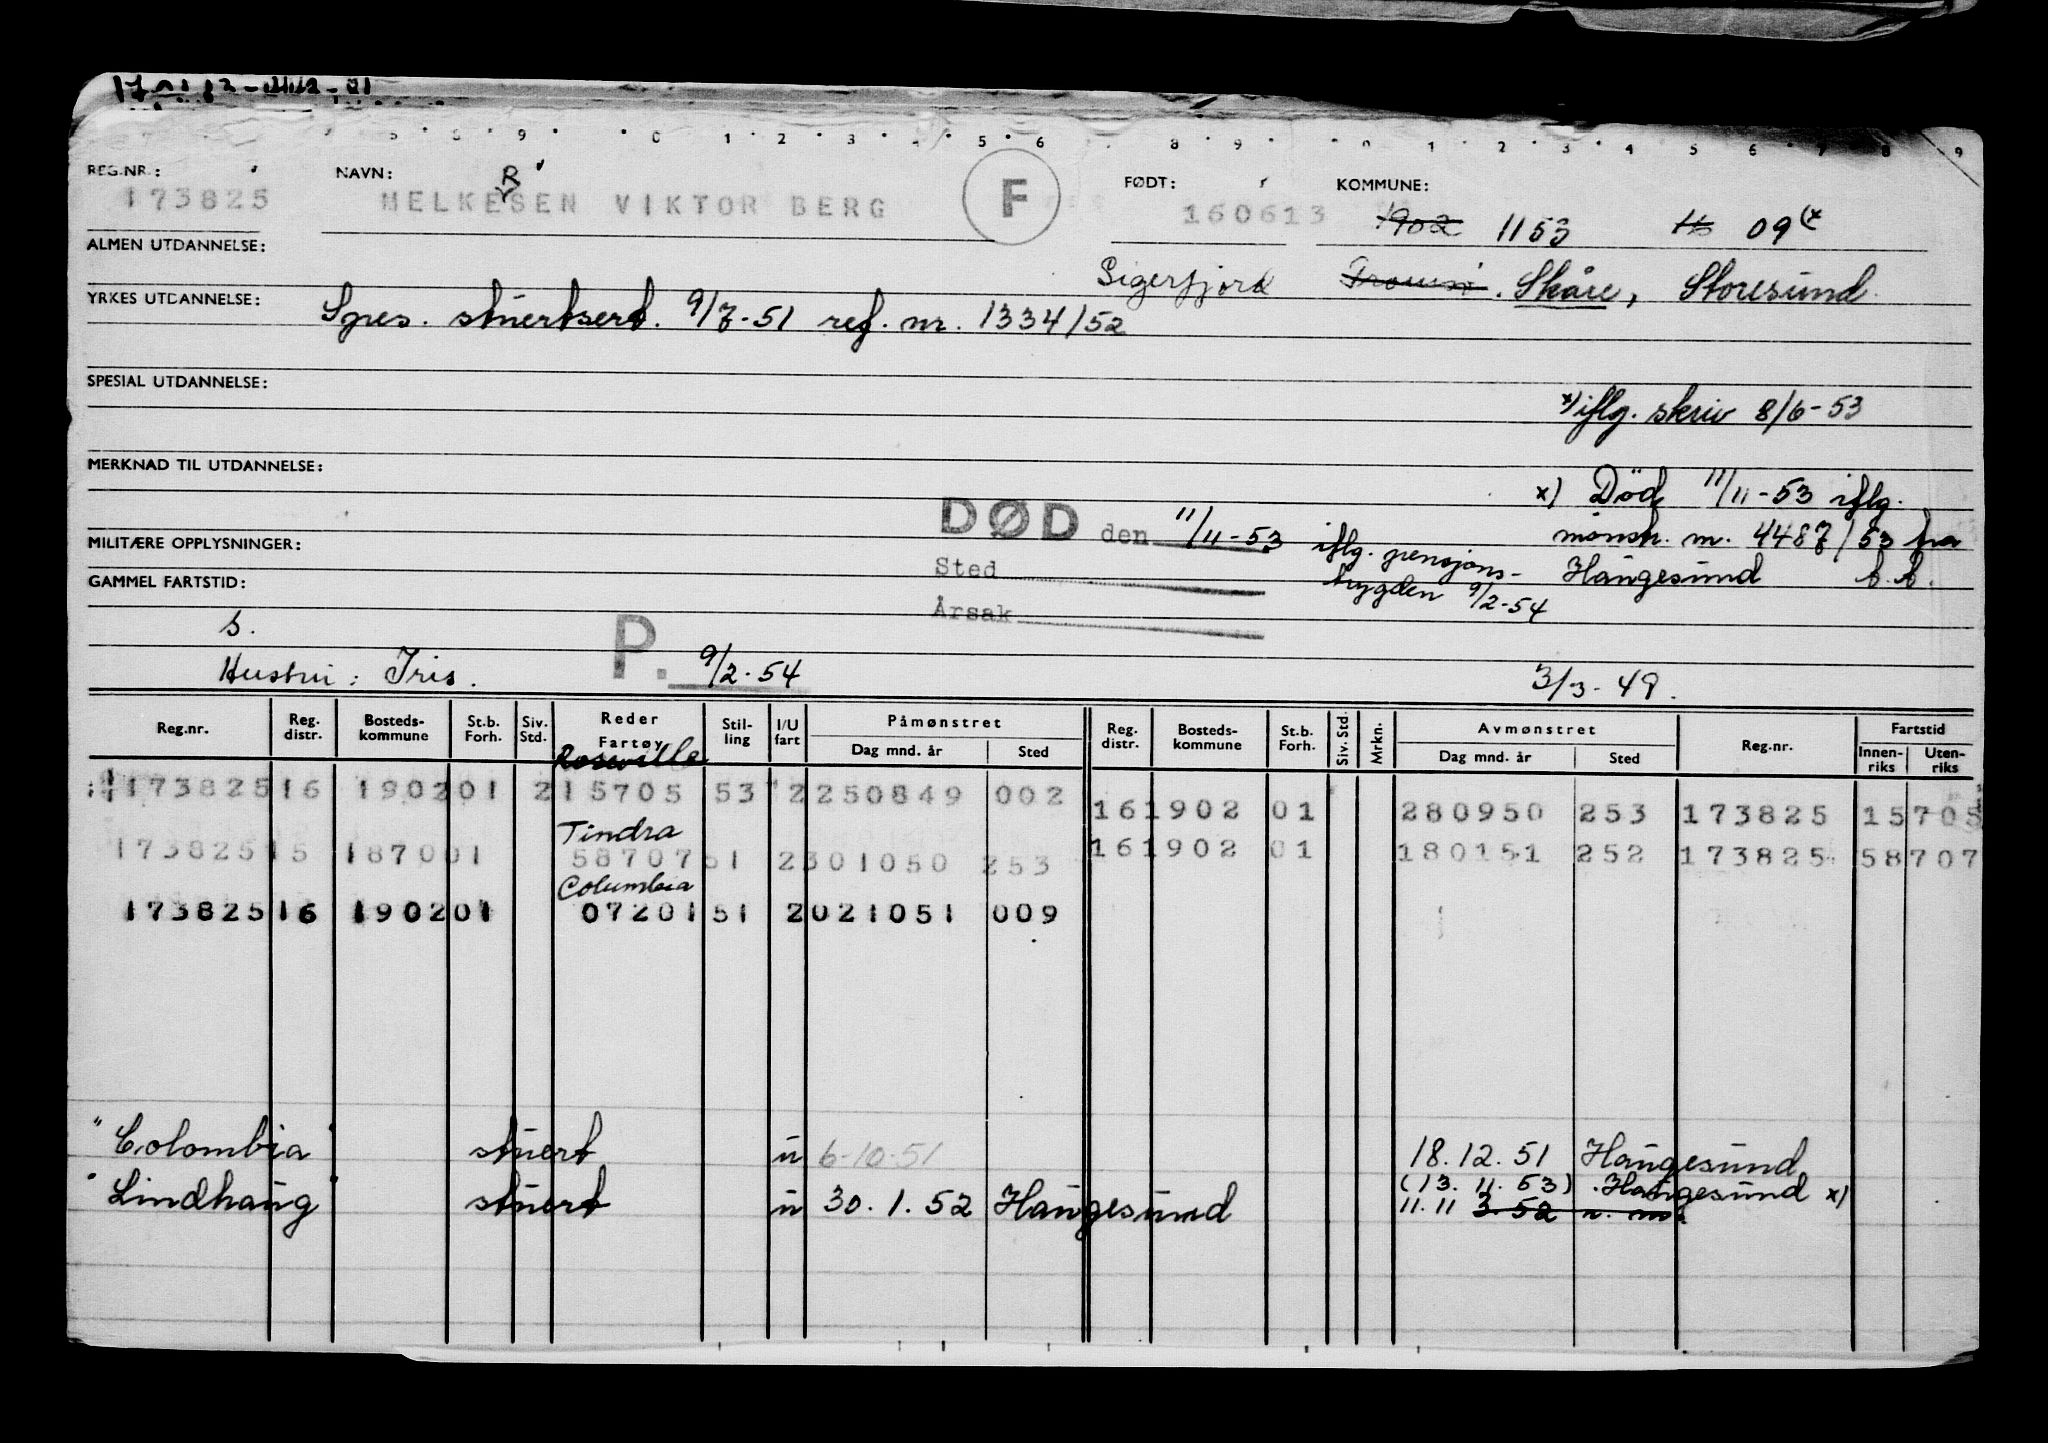 REG.NR.: NAVN: R F FØDT: KOMMUNE:
173825 MELKESEN VIKTOR BERG 160613 1902 1153 16 09 (x
ALMEN UTDANNELSE:
Sigerfjord Tromsø. Skåre, Storesund.
YRKES UTDANNELSE: Spes. stuertsert. 9/7-51 ref. nr. 1334/52
SPESIAL UTDANNELSE:
x) iflg. skriv 8/6-53
MERKNAD TIL UTDANNELSE:
x) Död 11/11-53 iflg.
DØD den 11/11-53 iflg. pensjons-
mønstr. nr. 4487/53 fra
MILITÆRE OPPLYSNINGER:
Sted trygden 9/2-54 Haugesund
GAMMEL FARTSTID:
Årsak
s.
Hustru: Iris. P. 9/2-54 3/3-49.
Reg.nr. Reg. distr. Bosteds-kommune St.b. Forh. Siv. Std. Reder Fartøy Stil-ling I/U fart Påmønstret Dag mnd. år Sted Reg. distr. Bosteds-kommune St.b. Forh. Siv. Std. Mrkn. Avmønstret Dag mnd. år Sted Reg.nr. Fartstid Innen-riks Uten-riks
Roseville
173825 16 1902 01 2 15705 53 2 250849 002 16 1902 01 280950 253 173825 15705
Tindra
173825 15 1870 01 58707 51 2 301050 253 16 1902 01 180151 252 173825 58707
Columbia
173825 16 1902 01 07201 51 2 021051 009
"Colombia" stuert u 6-10-51 18.12.51 Haugesund
(13.11.53) Haugesund x)
"Lindhaug" stuert u 30.1.52 Haugesund 11.11 3.52